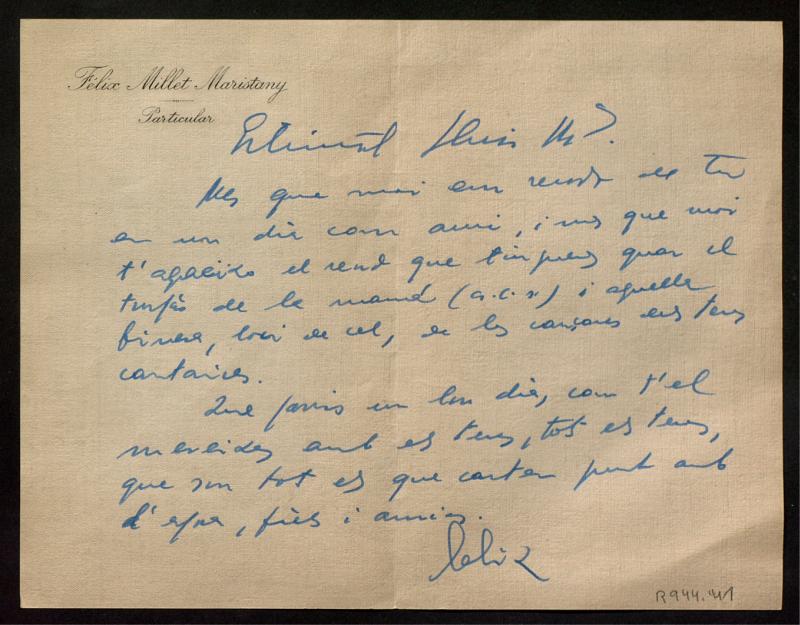 Félix Millet Maristany
Particular
Estimat Lluis Mª.
Mes que mai em record de Tu
en un dia com avui, i mes que mai
t'agraeixo el record que tingueres quan el
de la mamá (a.c.s.) i aquella
finesa, de cel, de les cançons dels teus
cantaires.
Que passis un bon dia, com t'el
mereixes amb els teus, tots els teus,
que son tots els que canten junt amb
d'espós, fills i amics.
Felix
R944.41